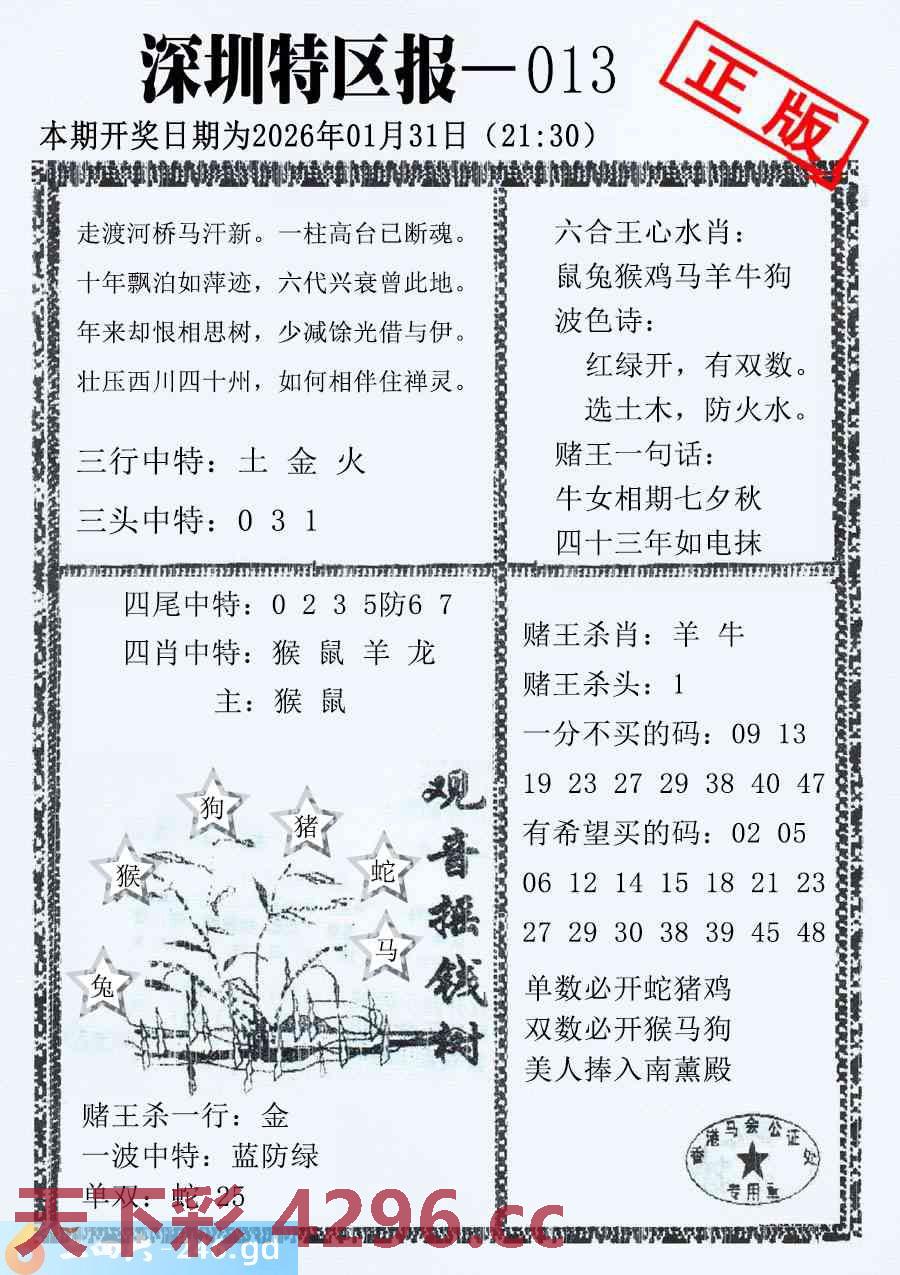 深圳特区报—013
正版
本期开奖日期为2026年01月31日（21:30）
走渡河桥马汗新。一柱高台已断魂。
十年飘泊如萍迹，六代兴衰曾此地。
年来却恨相思树，少减馀光借与伊。
壮压西川四十州，如何相伴住禅灵。
三行中特：土 金 火
三头中特：0 3 1
六合王心水肖：
鼠兔猴鸡马羊牛狗
波色诗：
红绿开，有双数。
选土木，防火水。
赌王一句话：
牛女相期七夕秋
四十三年如电抹
四尾中特：0 2 3 5防6 7
四肖中特：猴 鼠 羊 龙
主：猴 鼠
狗
猪
猴
蛇
马
兔
观音摇钱树
赌王杀一行：金
一波中特：蓝防绿
单双：蛇 25
赌王杀肖：羊 牛
赌王杀头：1
一分不买的码：09 13
19 23 27 29 38 40 47
有希望买的码：02 05
06 12 14 15 18 21 23
27 29 30 38 39 45 48
单数必开蛇猪鸡
双数必开猴马狗
美人捧入南薰殿
香港马会公证处
专用章
天下彩4296.cc
246.gd